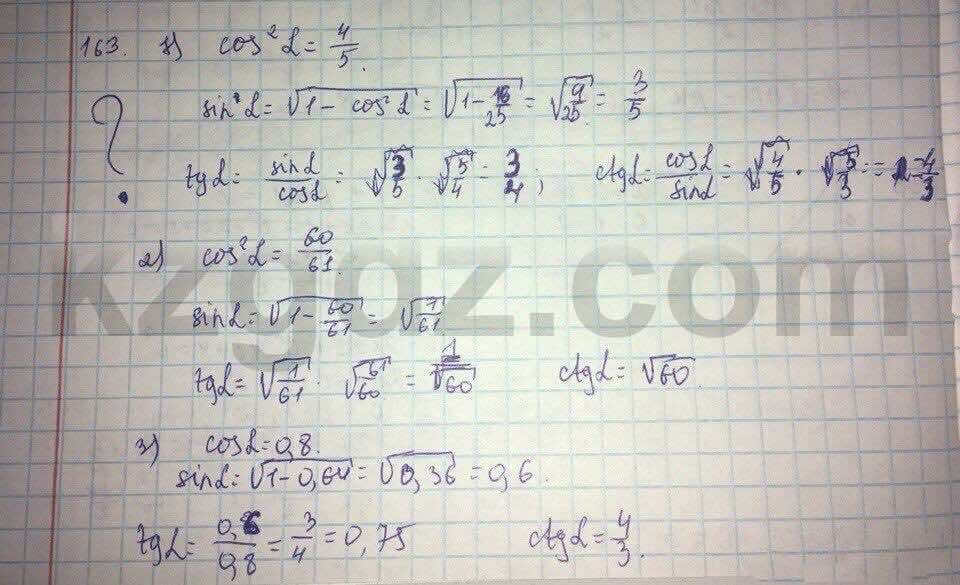 163. 1) cos²α = 4/5.
sin²α = √(1 - cos²α) = √(1 - 16/25) = √(9/25) = 3/5
tgα = sinα/cosα = √(3/5) · √(5/4) = 3/4; ctgα = cosα/sinα = √(4/5) · √(5/3) = = 4/3
?
2) cos²α = 60/61.
kzgdz.com
sinα = √(1 - 60/61) = √(1/61)
tgα = √(1/61) · √(61/60) = 1/√60 ctgα = √60.
3) cosα = 0,8.
sinα = √(1 - 0,64) = √(0,36) = 0,6.
tgα = 0,6/0,8 = 3/4 = 0,75 ctgα = 4/3.